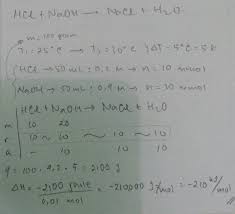 HCl + NaOH → NaCl + H₂O
m = 100 gram
T₁ = 25°C → T₂ = 30°C } ΔT = 5°C = 5 K
HCl → 50 mL ; 0,2 M → n = 10 mmol
NaOH → 50 mL ; 0,4 M → n = 20 mmol
HCl + NaOH → NaCl + H₂O
m 10 20
r 10 ~ 10 ~ 10 ~ 10
a - 10 10 10
q = 100 . 4,2 . 5 = 2100 J
ΔH = -2100 joule / 0,01 mol = -210000 J/mol = -210 kJ/mol